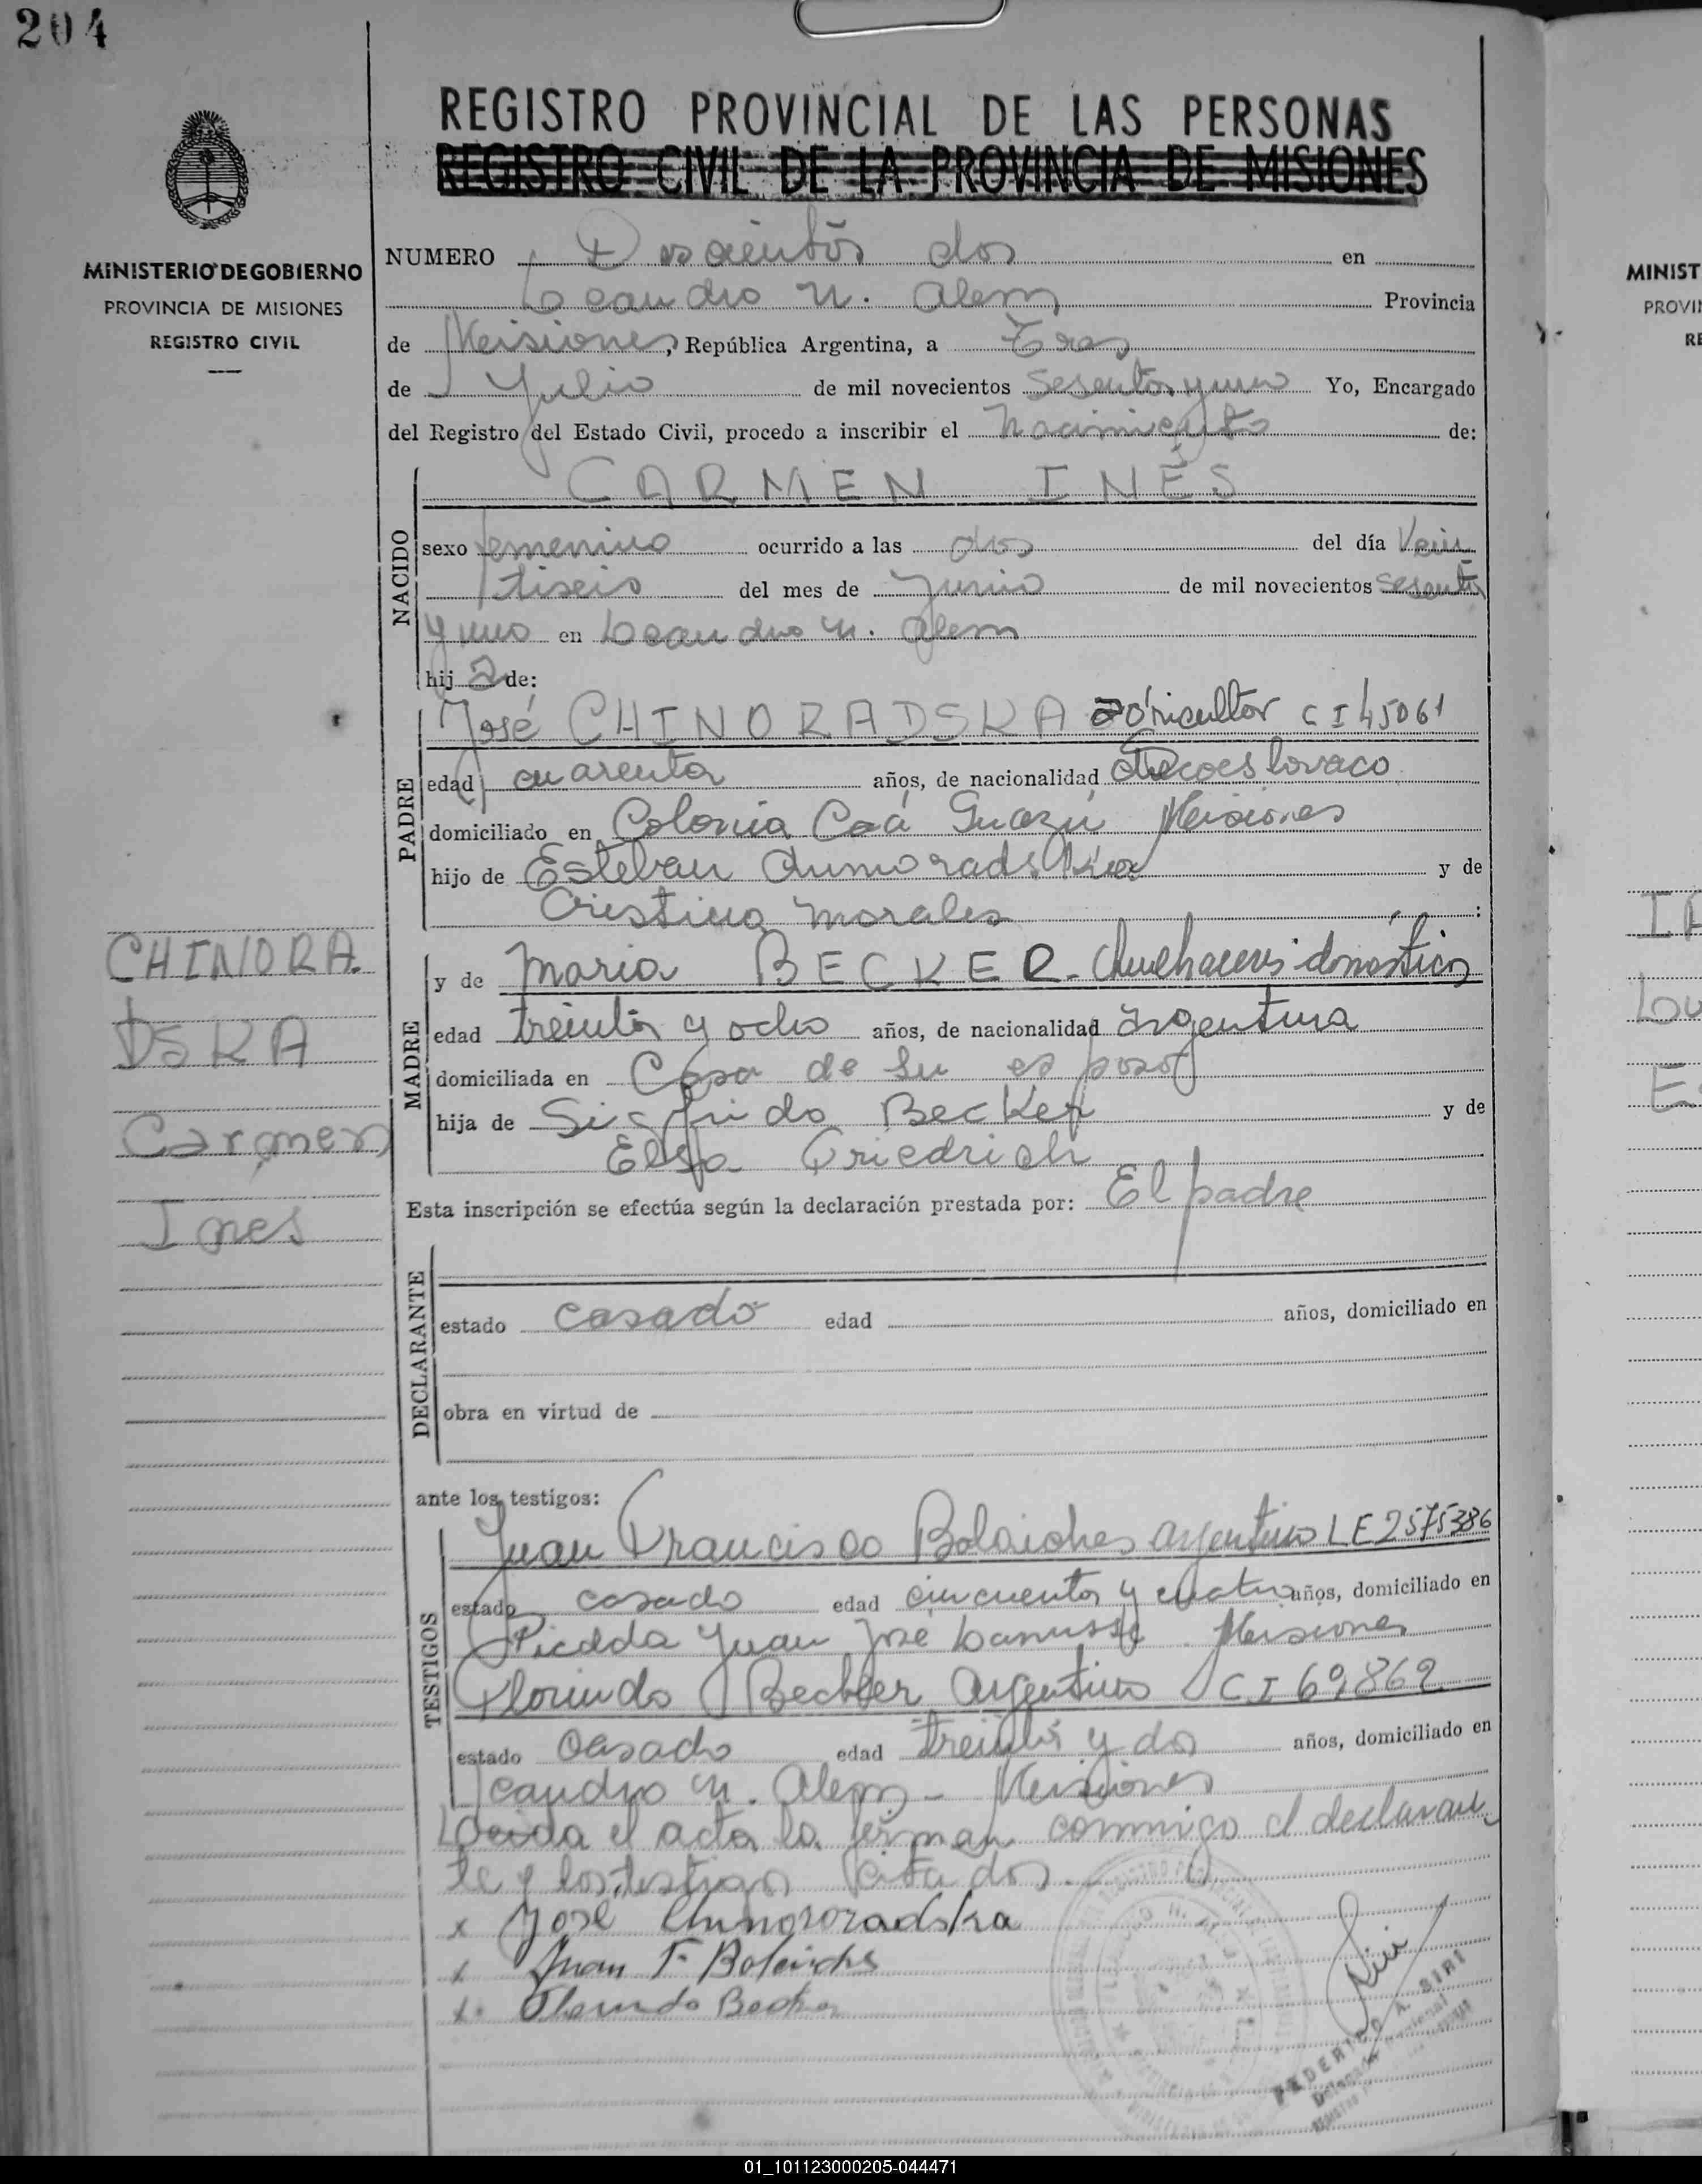 204
REGISTRO PROVINCIAL DE LAS PERSONAS
REGISTRO CIVIL DE LA PROVINCIA DE MISIONES
MINISTERIO DE GOBIERNO
PROVINCIA DE MISIONES
REGISTRO CIVIL
NUMERO Doscientos dos en
Leandro N. Alem Provincia
de Misiones, República Argentina, a Tres
de Julio de mil novecientos sesenta y uno Yo, Encargado
del Registro del Estado Civil, procedo a inscribir el Nacimiento de:
NACIDO
CARMEN INÉS
sexo femenino ocurrido a las dos del día Vein
tiseis del mes de Junio de mil novecientos sesenta
y uno en Leandro N. Alem
hija de:
PADRE
José CHINORADSKA agricultor CI 45061
edad cuarenta años, de nacionalidad checoeslovaco
domiciliado en Colonia Caá Guazú Misiones
hijo de Esteban y de
Cristina Morales :
CHINORA
DSKA
Carmen
Ines
MADRE
y de Maria BECKER - Quehaceres domésticos
edad treinta y ocho años, de nacionalidad argentina
domiciliada en Casa de su esposo
hija de Sigfrido Becker y de
Elsa Friedrich
Esta inscripción se efectúa según la declaración prestada por: El padre
DECLARANTE
estado casado edad años, domiciliado en
obra en virtud de
ante los testigos:
TESTIGOS
Juan Francisco argentino LE 2575386
estado casado edad cincuenta y cuatro años, domiciliado en
Picada Juan José Lanusse Misiones
Florindo Becker Argentino CI 69862
estado casado edad treinta y dos años, domiciliado en
Leandro N. Alem - Misiones
Leida el acta la firman conmigo el declaran
te y los testigos citados.
x José
x Juan F.
x Florindo Becker
FEDERICO A. SIRI
01_101123000205-044471
MINIST
PROVI
RE